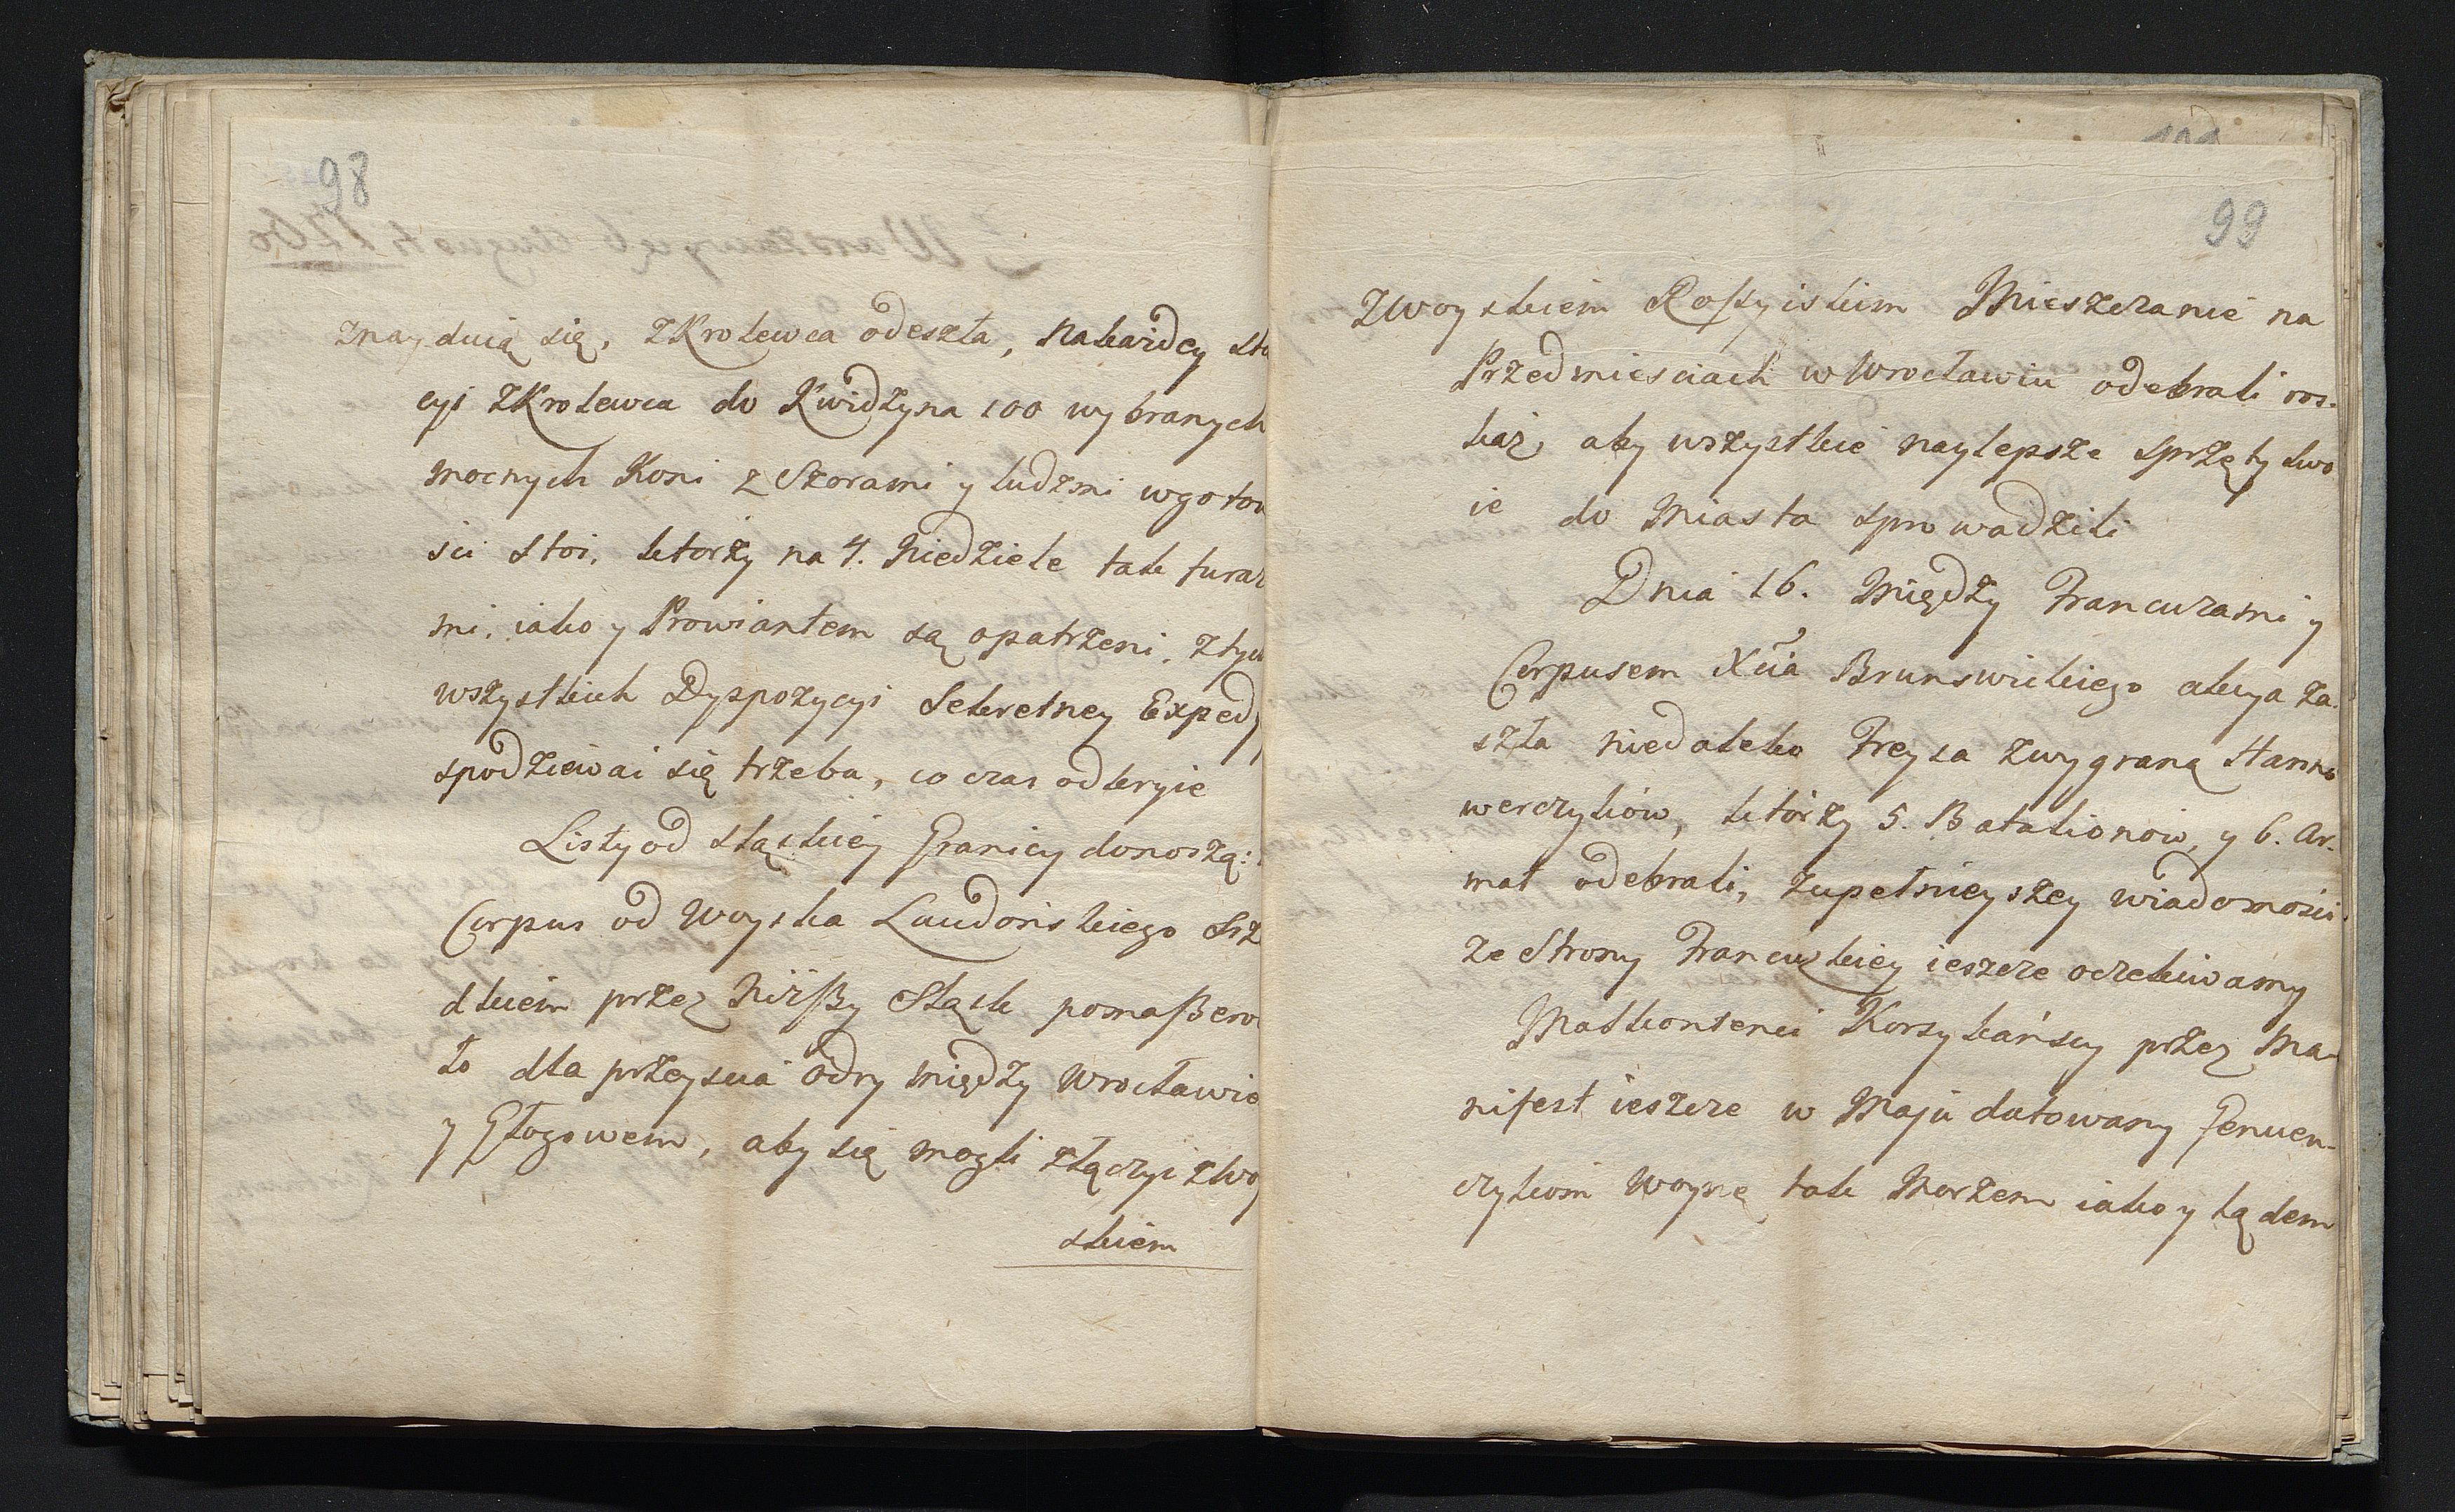 98
znayduią się, z Krolewca odeszła, na każdey sta
cyi z Krolewca do Kwidzyna 100 wybranych
mocnych Koni z Szorami y ludzmi w gotow
sci stoi, ktorzy na 4. Niedziele tak furaż
mi, iako y Prowiantem są opatrzeni, z tych
wszystkich Dyspozycyi Sekretney Expedy
spodziewać się trzeba, co czas odkryie
Listy od Sląskiey Granicy donoszą:
Corpus od Woyska Laudońskiego
dkiem przez Niżßzy Sląsk pomaßero
ło dla przeyscia Odry między Wrocławie
y Głogowem, aby się mogli złączyć z Woy
skiem
99
z Woyskiem Rossyiskim Mieszczanie na
Przedmiesciach w Wrocławiu odebrali roz-
kaz, aby wszystkie naylepsze sprzęty swo
ie do Miasta sprowadzili
Dnia 16. Między Francuzami y
Corpusem Xcia Brunswickiego akcya za-
szła niedaleko Treysa z wygraną Hanno
werczykow, ktorzy 5. Batalionow, y 6. Ar-
mat odebrali, zupełnieyszey wiadomości
ze Strony Francuzkiey ieszcze oczekiwamy
Malkontenci Korsykańscy przez Ma-
nifest ieszcze w Maju datowany Genuen-
czykom Woynę tak Morzem iako y lądem